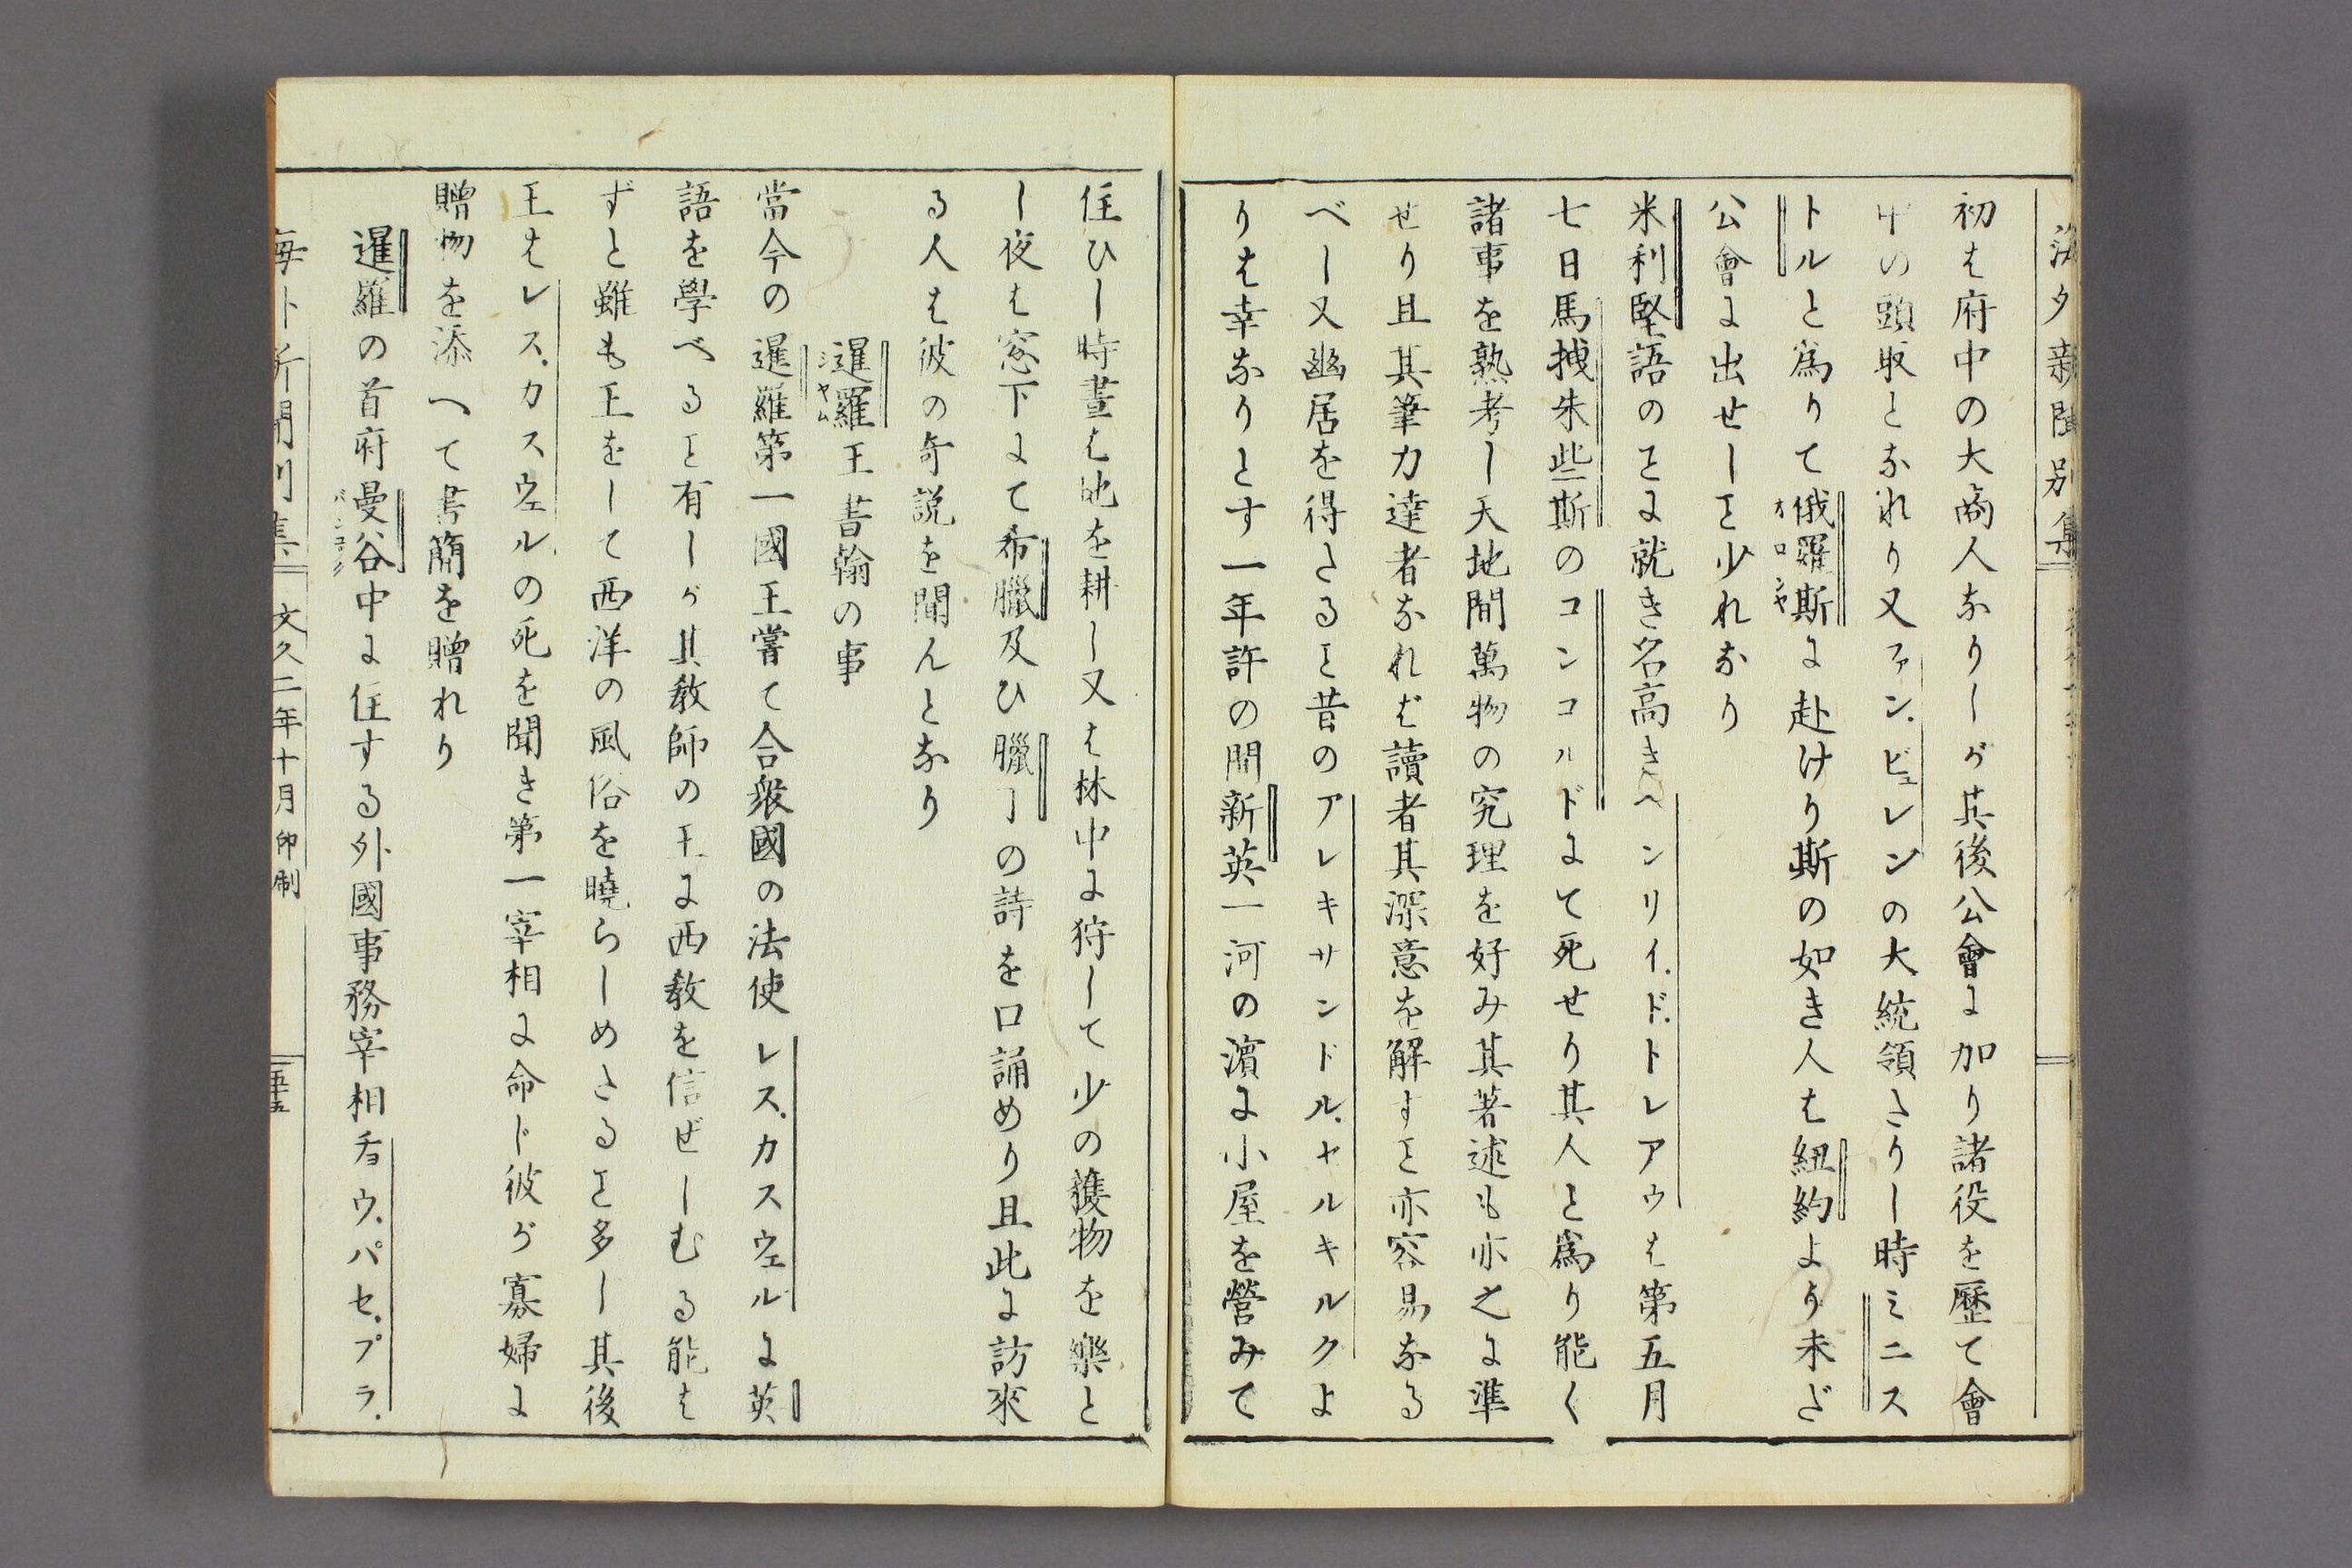 海外新聞別集
初は府中の大商人なりしが其後公會に加り諸役を歴て會
中の頭取となれり又ファン、ビュレンの大統領たりし時ミニス
トルと爲りて俄羅斯に赴けり斯の如き人は紐約より未だ
オロシヤ
公會に出せしヿ少れなり
米利堅語のヿに就き名高きヘンリイ、ド、トレアウは第五月
七日馬撒朱些斯のコンコルドにて死せり其人と爲り能く
諸事を熟考し天地間萬物の究理を好み其著述も亦之に準
せり且其筆力達者なれば讀者其深意を解すヿ亦容易なる
べし又幽居を得たるヿ昔のアレキサンドル、セルキルクよ
りは幸なりとす一年許の間新英一河の濵に小屋を營みて
住ひし時晝は地を耕し又は林中に狩して少の獲物を樂と
し夜は窓下にて希臘及ひ臘丁の詩を口誦めり且此に訪來
る人は彼の奇説を聞んとなり
暹羅王書翰の事
シヤム
當今の暹羅第一國王嘗て合衆國の法使レス、カスウェルに英
語を學べるヿ有しが其教師の王に西教を信ぜしむる能は
ずと雖も王をして西洋の風俗を曉らしめたるヿ多し其後
王はレス、カスウェルの死を聞き第一宰相に命じ彼が寡婦に
贈物を添へて書簡を贈れり
暹羅の首府曼谷中に住する外國事務宰相チョウ、パセ、プラ、
バンコック
海外新聞別集
文久二年十月印刷
五十五